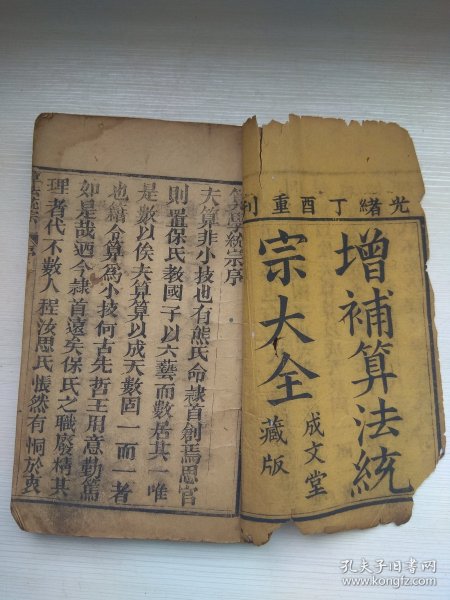 光緒丁酉重刊
增補算法統
宗大全
成文堂
藏版
統宗序
夫算非小技也有熊氏命隸首創焉周官
則置保氏教國子以六藝而數居其一唯
是數以俟夫算算以成天數固一而一者
也籍令算為小技何古先哲王用意勤篤
如是哉迺今隸首遠矣保氏之職廢精其
理者代不數人程汝思氏悵然有恫於衷
孔夫子旧书网
www.kongfz.com